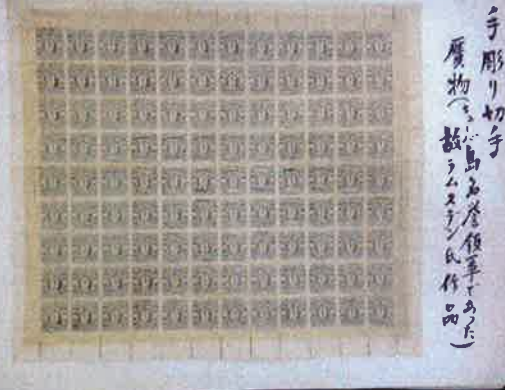 手彫り切手
贋物(　島名誉領事であった)
故ラムスデン氏作品